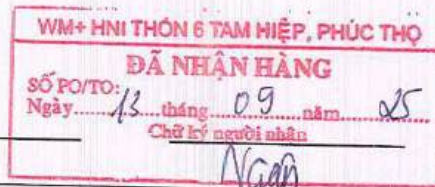 WM+ HNI THÔN 6 TAM HIỆP, PHÚC THỌ
ĐÃ NHẬN HÀNG
SỐ PO/TO:
Ngày 13 tháng 09 năm 25
Chữ ký người nhận
Ngân